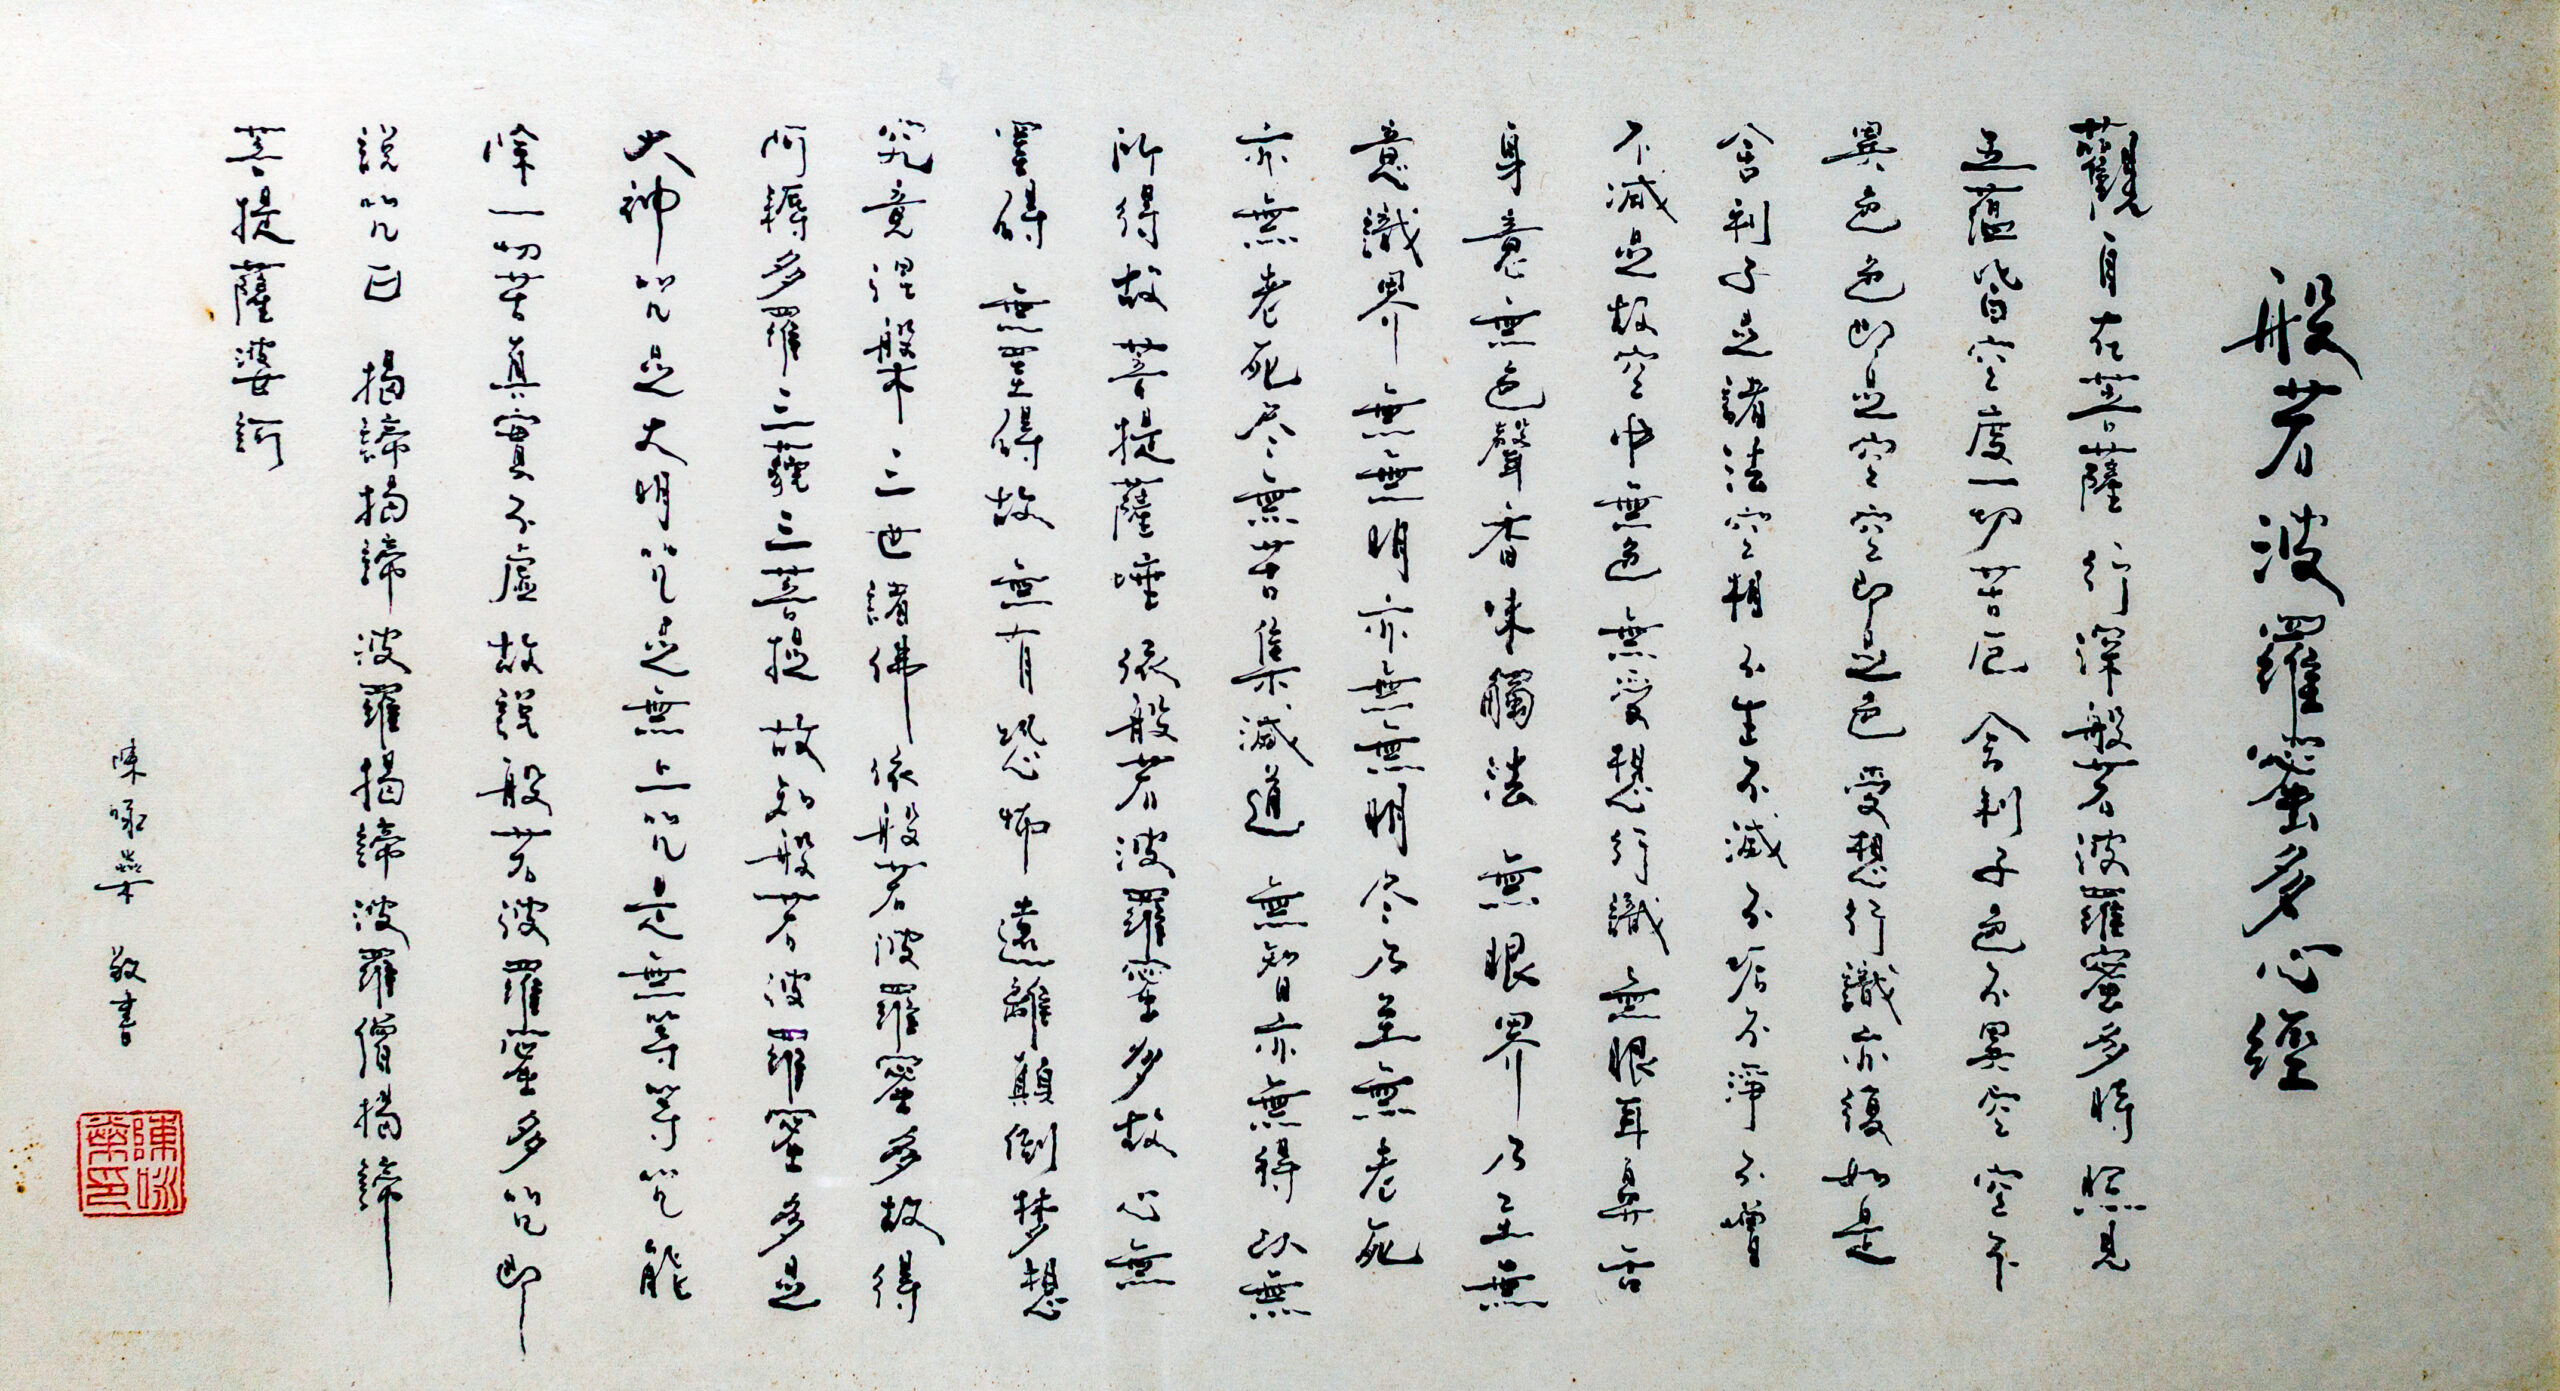 般若波羅蜜多心經
觀自在菩薩 行深般若波羅蜜多時 照見
五蘊皆空度一切苦厄 舍利子色不異空 空不
異色色即是空空即是色 受想行識亦復如是
舍利子是諸法空相 不生不滅不垢不淨不增
不減是故空中無色無受想行識 無眼耳鼻舌
身意無色聲香味觸法 無眼界乃至無
意識界 無無明亦無無明尽乃至無老死
亦無老死尽 無苦集滅道 無智亦無得以無
所得故菩提薩埵 依般若波羅蜜多故心無
罣碍 無罣碍故 無有恐怖 遠離顛倒梦想
究竟涅槃 三世諸佛 依般若波羅蜜多故得
阿耨多羅三藐三菩提 故知般若波羅蜜多是
大神咒是大明咒是無上咒是無等等咒能
除一切苦真實不虛 故說般若波羅蜜多咒即
說咒曰 揭諦揭諦 波羅揭諦 波羅僧揭諦
菩提薩婆訶
陳咏 敬書
陳咏
印